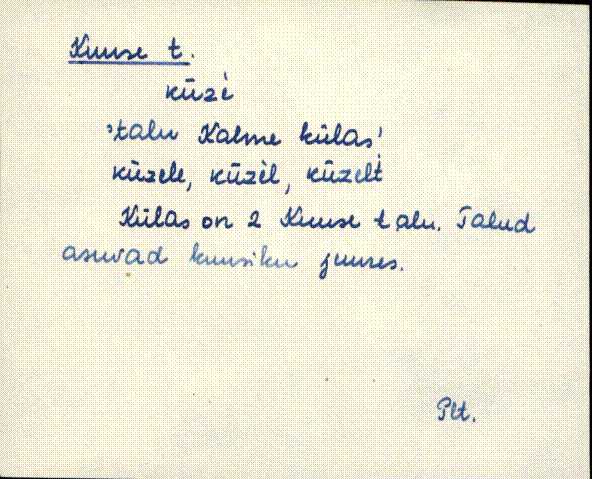 Kuuse t.
kūzè
'talu Kalme külas'
kūzele, kūzèl, kūzelt
Külas on 2 Kuuse talu. Talud
asuvad kuusiku juures.
Plt.